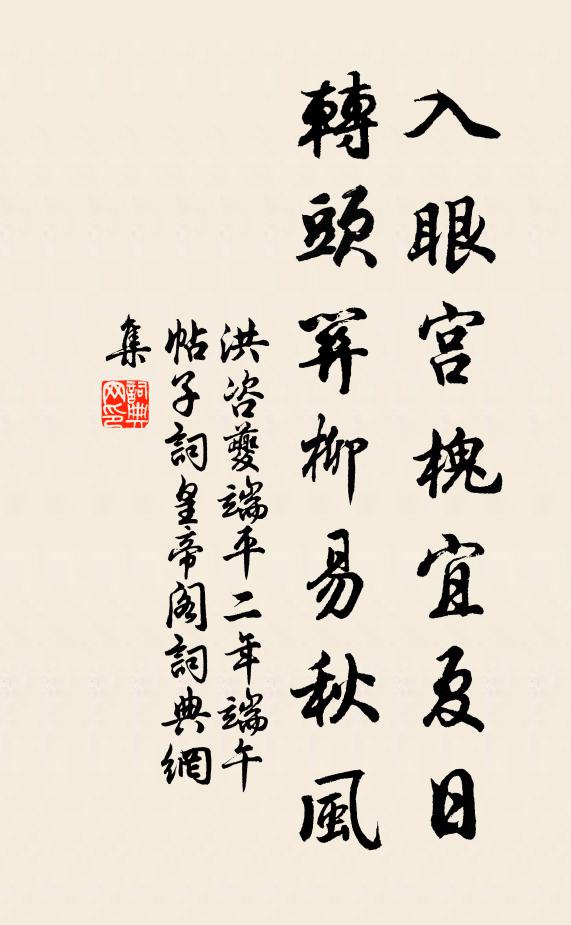 入眼宫槐宜夏日
轉頭關柳易秋風
洪咨夔端平二年端午
帖子詞皇帝閣詞典網
集
詞典
网印